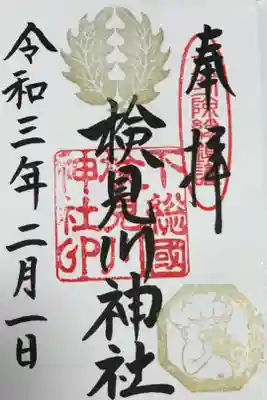 奉拝
検見川神社
令和三年二月一日
下総國
検見川
神社印